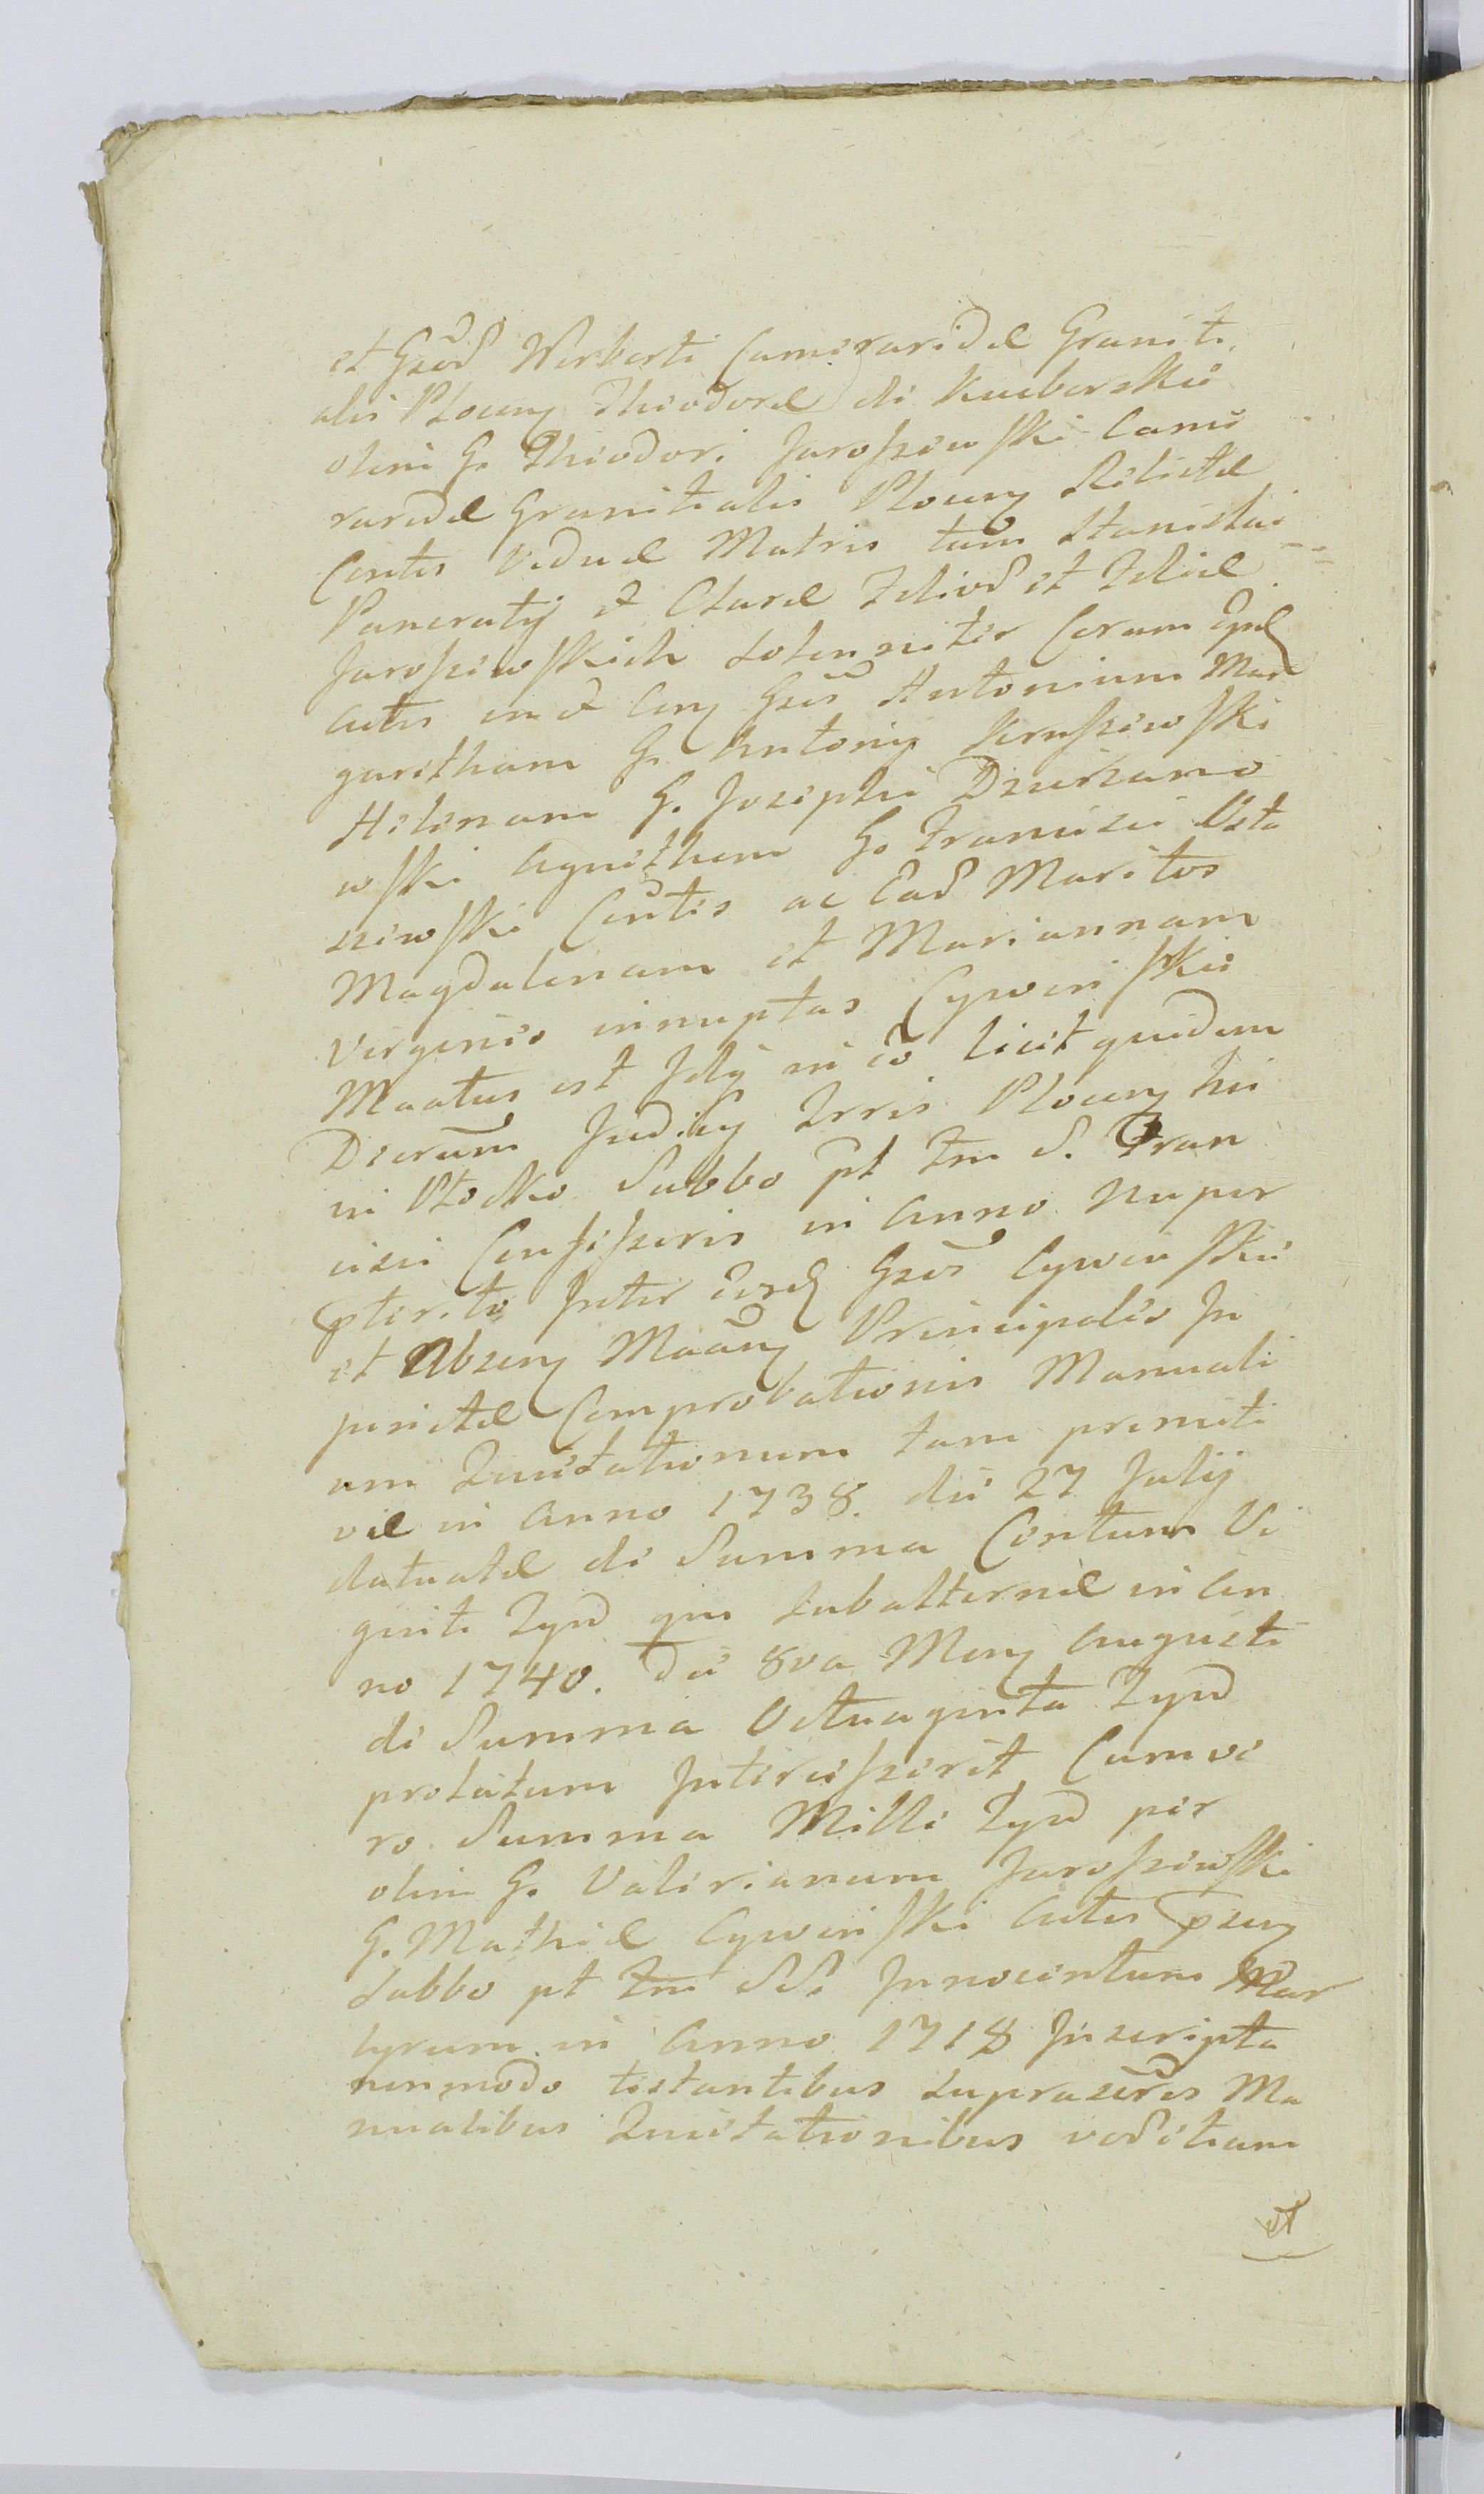 et Gzōd Norberti Cameraridæ Graniti
alis Plocen Theodoræ de Kucborskie
olim G. Theodori Jaroszewski Came
raridæ Granitialis Plocen Relictæ
Contis Viduæ Matris tum Stanislai
Pancratij et Claræ Filiod et Filiæ
Jaroszewskich Solenniter Coram
Actis in et Con Gzos Antonium Mar
garetham G. Antonij Kruszewski
Helenam G. Josephi Dzierzano
wski Agnetham G. Francisci Osta
szewski Contis ac Ead Maritos
Magdalenam et Mariannam
Virgines innuptas Cywinskie
Maatus est Jdq in eo licet quidem
Dzierum Judicy Trris Plocen hic
in Plocko Sabbo pt Fm S. Fran
cisci Confeszoris in Anno nuper
pterito Inter eosd Gzos Cywinskie
et Abzen Maan Principales In
junctæ Comprobationis Manuali
um Quietationum tam primiti
væ in Anno 1738. die 27 Julij
datuatæ de Summa Centum Vi
ginti Fynd qm Subalternæ in An
no 1740. die 8va Men Augusti
de Summa Octuaginta Fynd
prolatum Interceszerit Cum ve
ro Summa Mille Fynd per
olim G. Valerianum Jaroszewski
G. Mathiæ Cywinski Actis pzen
Sabbo pt Fm SS. Innocentum Mar
tyrum in Anno 1718 Inscripta
nonmodo testantibus suprascris Ma
nualibus Quietationibus vod etiam
et